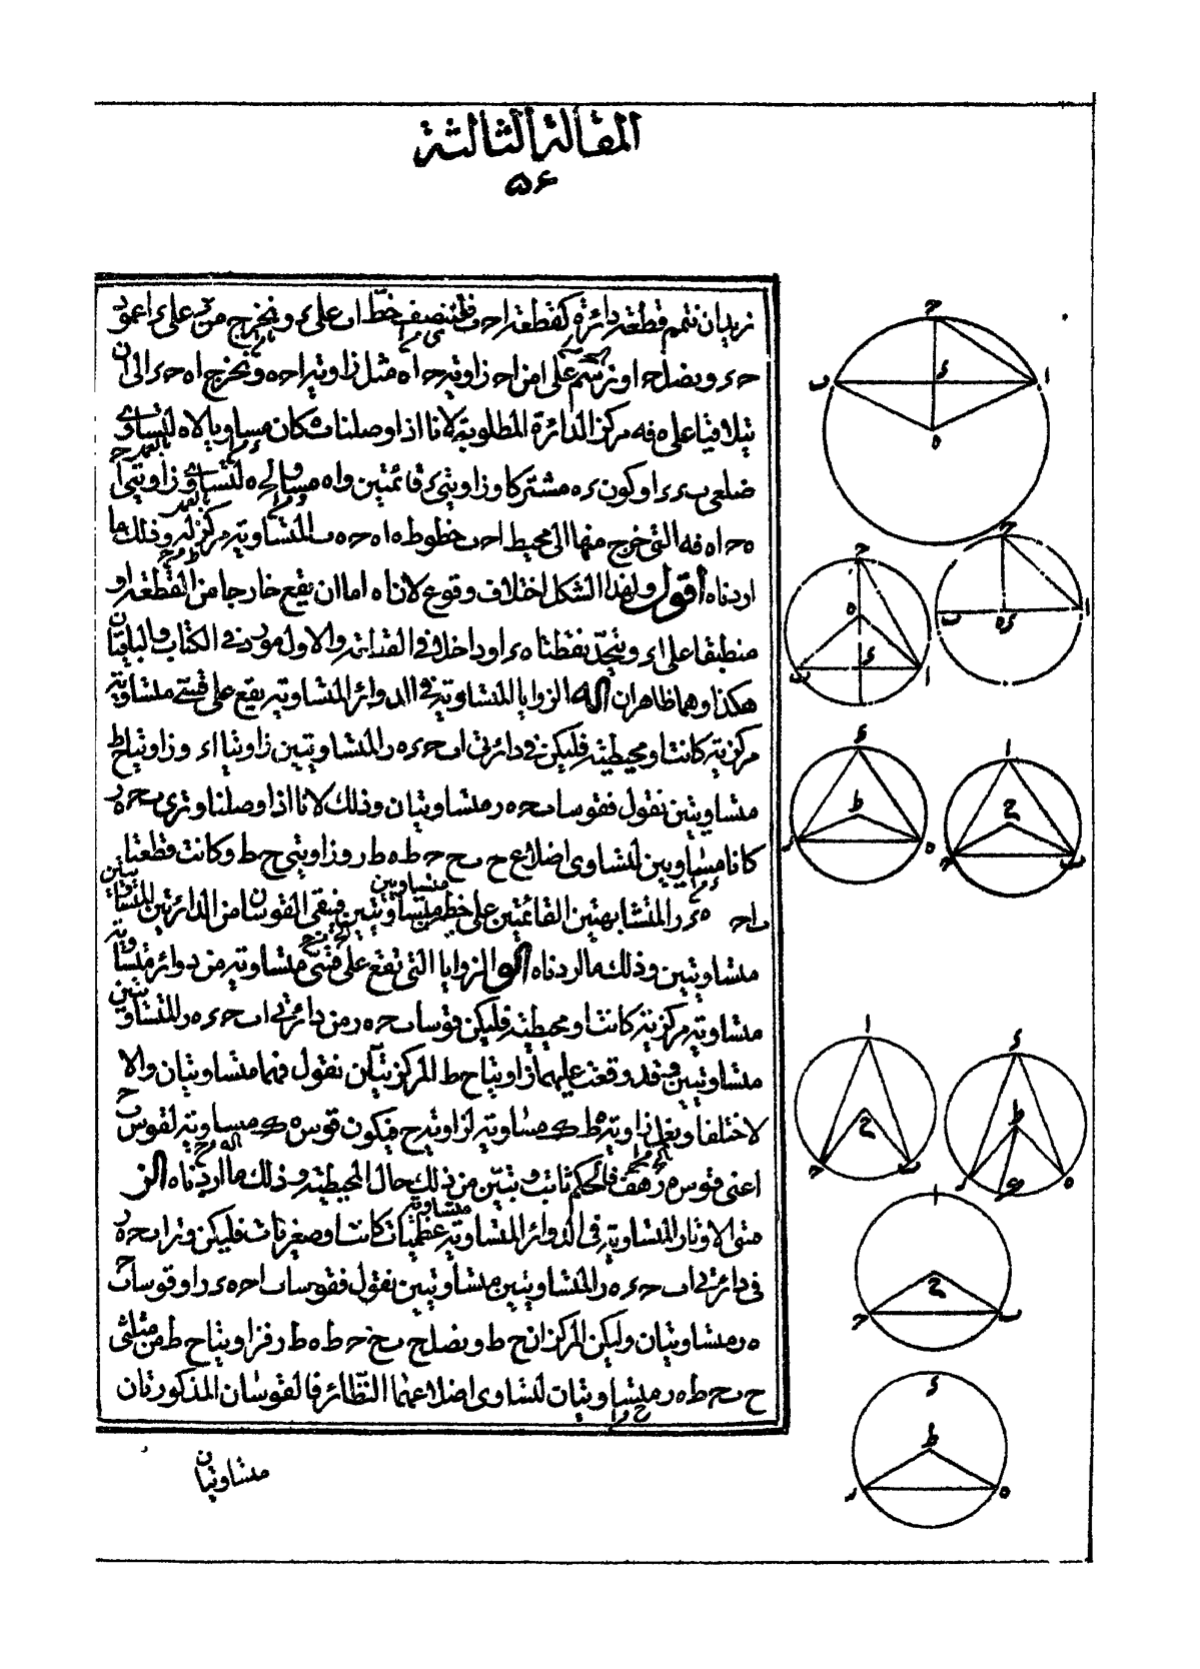 المقالة الثالثة
٥٤
نريد ان نتمم قطعة دائرة كقطعة احب فلننصف خط اب على ء ونخرج من ء على اء عمود
حء ونصل حا ونرسم على ا من اح زاوية حاه مثل زاوية احه ونخرج اه حء الى ان
يتلاقيا على ه فه مركز الدائرة المطلوبة لانا اذا وصلنا ه ب كان مساويا لاه لتساوى
ضلعى بء ءا وكون ءه مشتركا وزاويتى ء قائمتين واه مساو لحه لتساوى زاويتى ا
ه حاه فه التى خرج منها الى محيط احب خطوط ها هح هب المتساوية مركز له وذلك ما
اردناه اقول ولهذا الشكل اختلاف وقوع لان اه اما ان يقع خارجا من القطعة او
منطبقا على اء ويتحد نقطتا ه ء او داخلا فى القطعة والاول مورد فى الكتاب والباقيان
هكذا وهما ظاهران كه الزوايا المتساوية فى الدوائر المتساوية يقع على قسى متساوية
مركزية كانت او محيطية فليكن فى دائرتى ابح ءهر المتساويتين زاويتا ا ء وزاويتا ح ط
متساويتين نقول فقوسا بح هر متساويتان وذلك لانا اذا وصلنا وترى بح هر
كانا متساويين لتساوى اضلاع ح ب ح ح ط ه ط ر وزاويتى ح ط وكانت قطعتا
باح هءر المتشابهتين القائمتين على خطين متساويين متساويتين فبقى القوسان من الدائرتين المتساويتين
متساويتين وذلك ما اردناه كو الزوايا التى تقع على قسى متساوية من دوائر متساوية
متساوية مركزية كانت او محيطية فليكن قوسا بح هر من دائرتى ابح ءهر المتساويتين
متساويتين وقد وقعت عليهما زاويتا ح ط المركزيتان نقول فهما متساويتان والا
لاختلفا ونعمل زاوية ه ط ك مساوية لزاوية ح فيكون قوس ه ك مساوية لقوس ب ح
اعنى قوس هر هف فالحكم ثابت وتبين من ذلك حال المحيطية وذلك ما اردناه كز
متى الاوتار المتساوية فى الدوائر المتساوية متساوية عظميات كانت او صغريات فليكن وترا بح هر
فى دائرتى ابح ءهر المتساويتين متساويتين نقول فقوسا باح هءر او قوسا بح
هر متساويتان وليكن المركزان ح ط ونصل ح ب ح ح ط ه ط ر فزاويتا ح ط من مثلثى
ح ب ح ط ه ر متساويتان لتساوى اضلاعهما النظائر فالقوسان المذكورتان
متساويتان